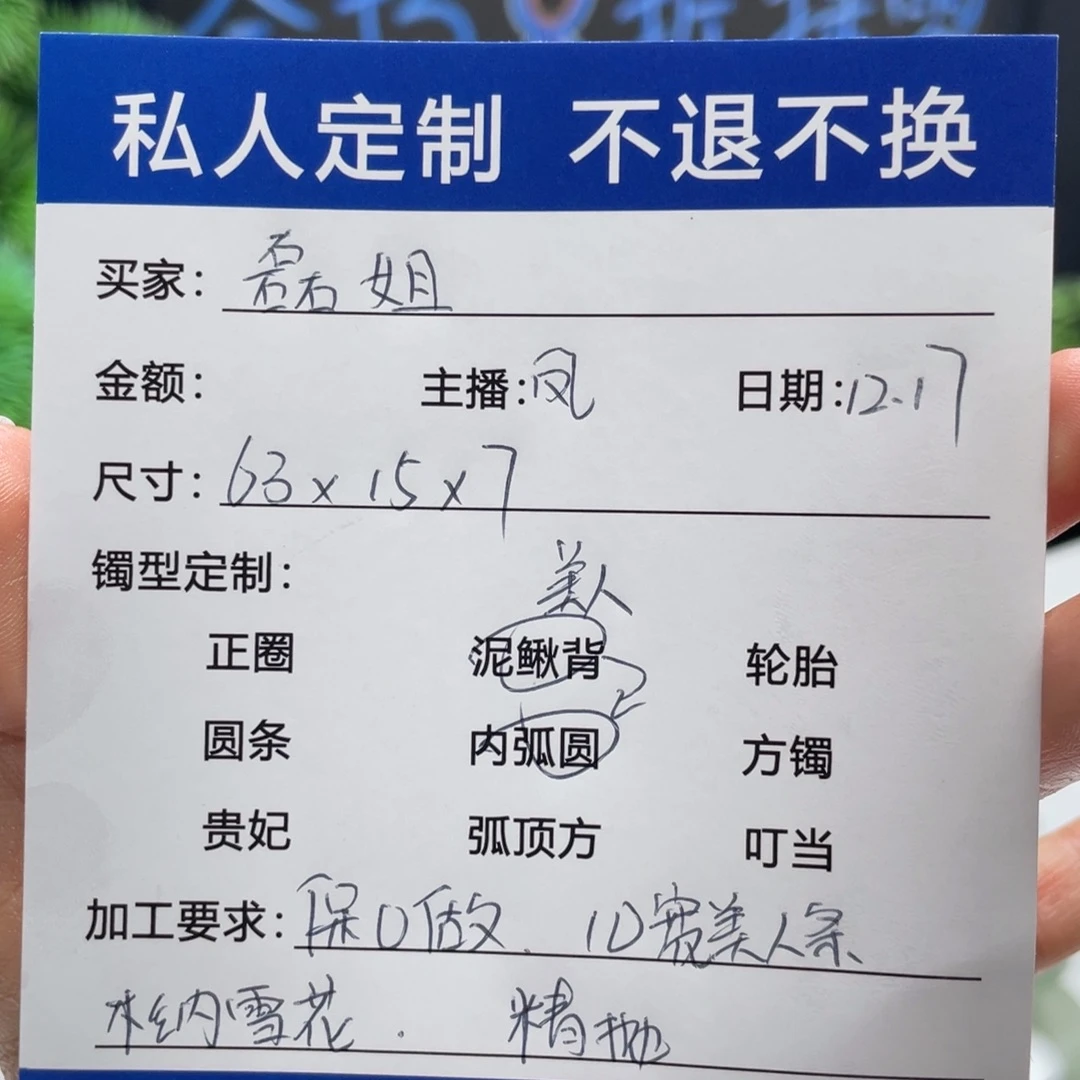 私人定制 不退不换
买家：磊姐
金额： 主播：凤 日期：12.17
尺寸：63x15x7
镯型定制：
美人
正圈 泥鳅背 轮胎
圆条 内弧圆 方镯
贵妃 弧顶方 叮当
加工要求：保口做. 10宽美人条
木纳雪花. 精抛